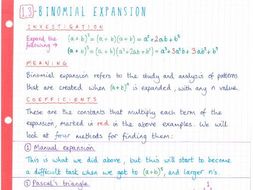 1.3 - BINOMIAL EXPANSION
INVESTIGATION
Expand the following →
(a+b)² = (a+b)(a+b) = a²+2ab+b²
(a+b)³ = (a+b)(a²+2ab+b²) = a³+3a²b+3ab²+b³
MEANING
Binomial expansion refers to the study and analysis of patterns
that are created when (a+b)ⁿ is expanded, with any n value.
COEFFICIENTS
These are the constants that multiply each term of the
expansion, marked in red in the above examples. We will
look at four methods for finding them:
① Manual expansion
This is what we did above, but this will start to become
a difficult task when we get to (a+b)⁴, and larger n's.
② Pascal's triangle